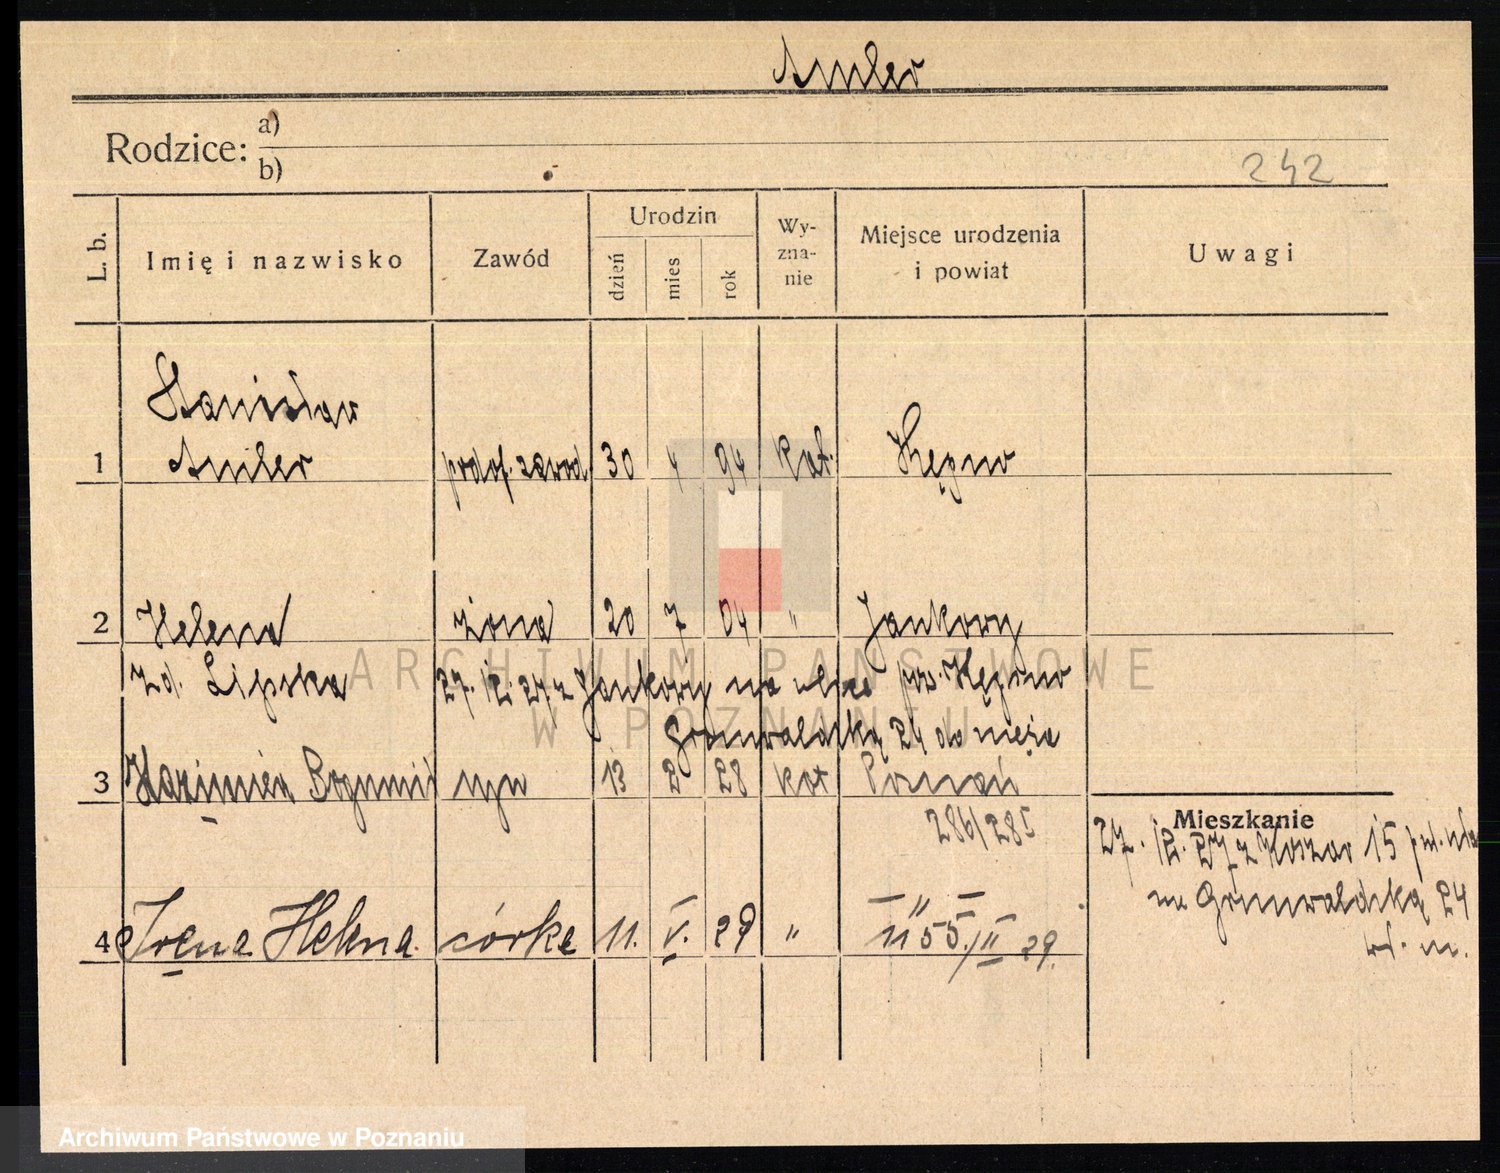 Amler
Rodzice: a)
b)
242
L. b. Imię i nazwisko Zawód Urodzin dzień mies rok Wy-zna-nie Miejsce urodzenia i powiat Uwagi
Stanisław
1 Amler podof. zawod. 30 4 94 Kat. Kępno
2 Helena żona 20 7 04 " Jankowy
zd. Lipska 27. 12. 27 z Jankowy na ulicę pow. Kępno
Grunwaldzką 24 do męża
3 Kazimierz Bogumił syn 13 2 28 kat Poznań
286/285
Mieszkanie
27. 12. 27 z Koszar 15
na Grunwaldzką 24
4 Irena Helena córka 11. V. 29 " — " —
1155/II 29.
ARCHIWUM PAŃSTWOWE
W POZNANIU
Archiwum Państwowe w Poznaniu